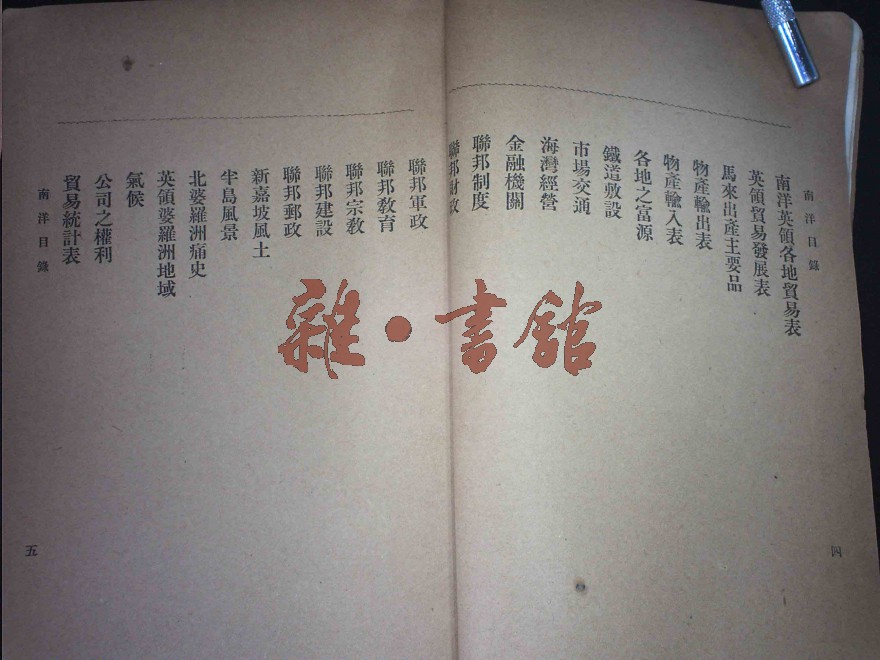 南洋目錄
南洋英領各地貿易表
英領貿易發展表
馬來出產主要品
物產輸出表
物產輸入表
各地之富源
鐵道敷設
市場交通
海灣經營
金融機關
聯邦制度
聯邦財政
四
聯邦軍政
聯邦教育
聯邦宗教
聯邦建設
聯邦郵政
新嘉坡風土
半島風景
北婆羅洲痛史
英領婆羅洲地域
氣候
公司之權利
貿易統計表
南洋目錄
五
雜·書館